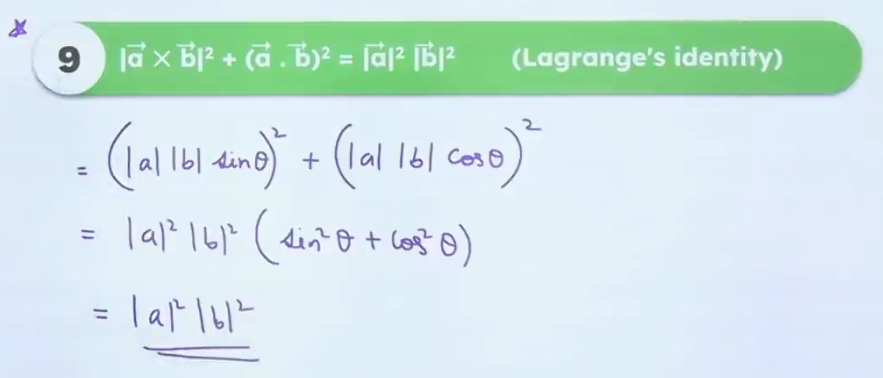 9 |a⃗ × b⃗|² + (a⃗ . b⃗)² = |a⃗|² |b⃗|² (Lagrange's identity)
= (|a| |b| sinθ)² + (|a| |b| cosθ)²
= |a|² |b|² (sin²θ + cos²θ)
= |a|² |b|²